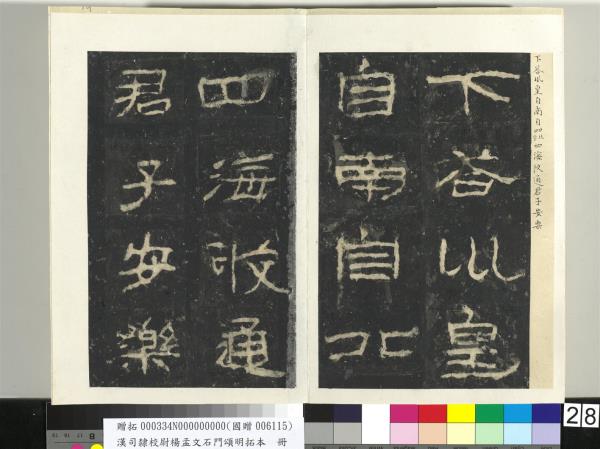 下荅巛皇自南自北四海攸通君子安樂
下荅巛皇
自南自北
四海攸通
君子安樂
贈拓 000334N000000000(國贈 006115)
漢司隸校尉楊孟文石門頌明拓本 冊
28
8